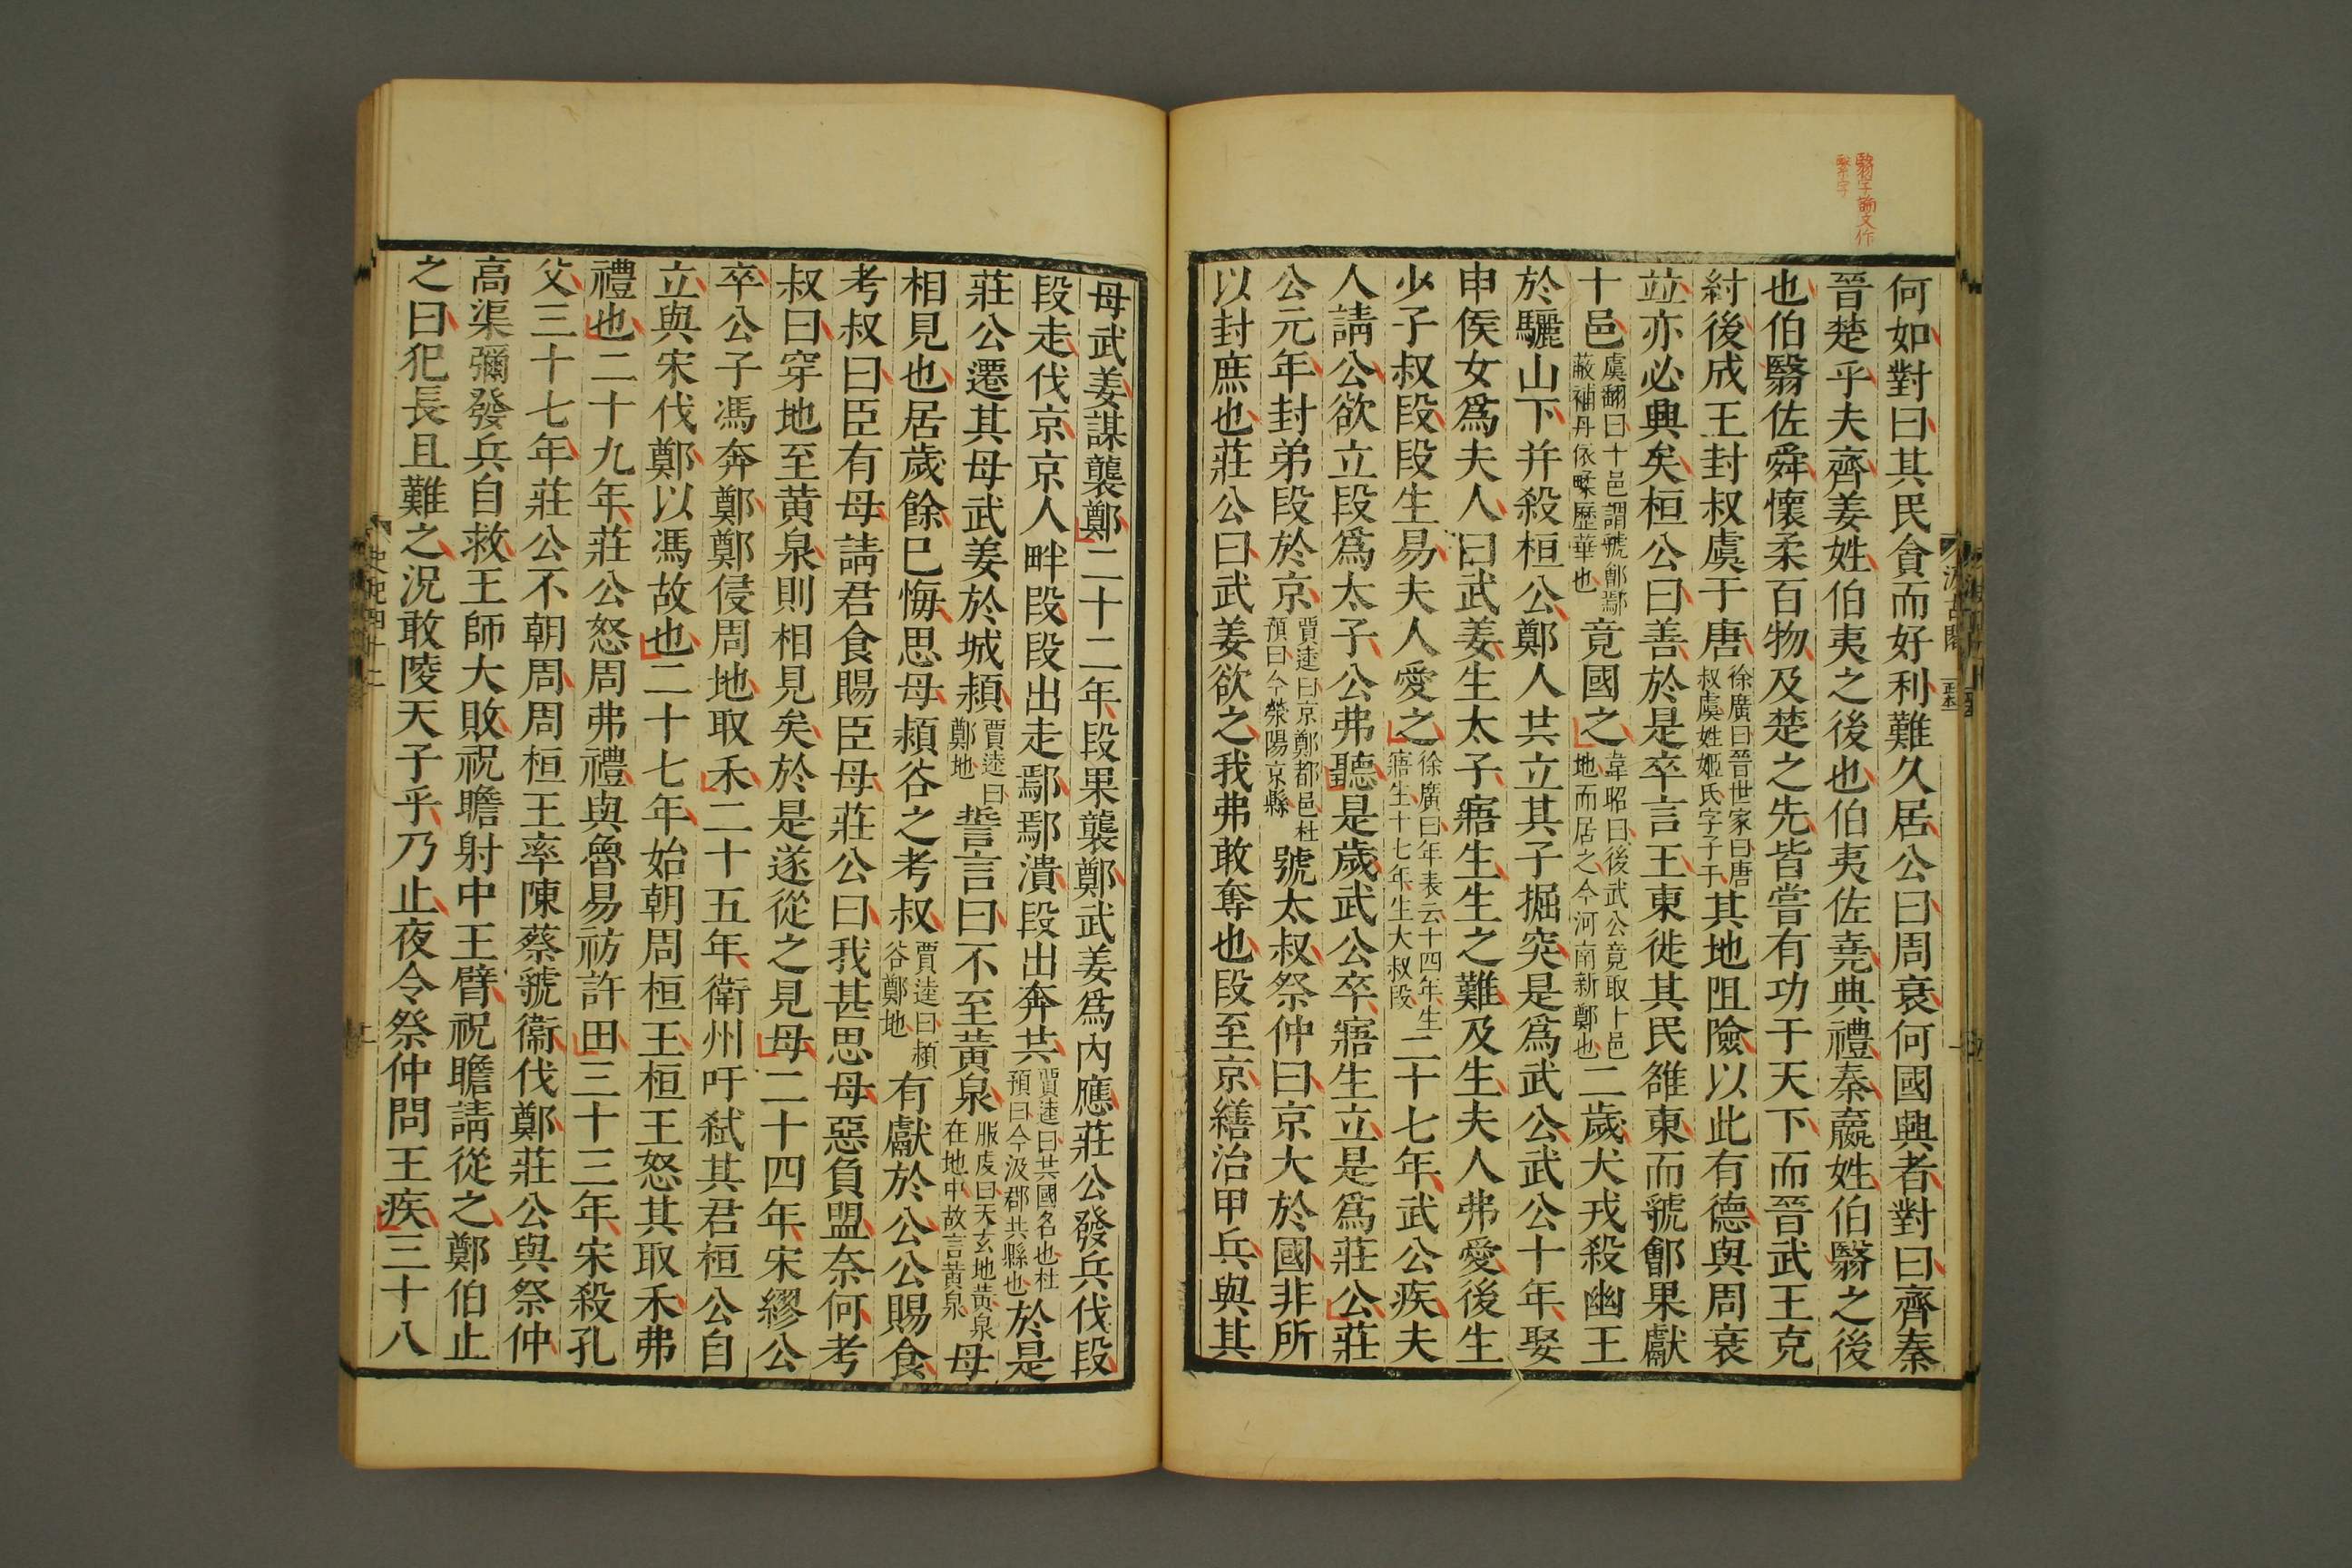 翳字論文作
繄字
何如對曰其民貪而好利難久居公曰周衰何國興者對曰齊秦
晉楚乎夫齊姜姓伯夷之後也伯夷佐堯典禮秦嬴姓伯翳之後
也伯翳佐舜懷柔百物及楚之先皆嘗有功于天下而晉武王克
紂後成王封叔虞于唐徐廣曰晉世家曰唐叔虞姓姬氏字子于其地阻險以此有德與周衰
竝亦必興矣桓公曰善於是卒言王東徙其民雒東而虢鄶果獻
十邑虞翻曰十邑謂虢鄶鄢蔽補丹依㽥歷華也竟國之韋昭曰後武公竟取十邑地而居之今河南新鄭也二歲犬戎殺幽王
於驪山下并殺桓公鄭人共立其子掘突是爲武公武公十年娶
申侯女爲夫人曰武姜生太子寤生生之難及生夫人弗愛後生
少子叔段段生易夫人愛之徐廣曰年表云十四年生寤生十七年生大叔段二十七年武公疾夫
人請公欲立段爲太子公弗聽是歲武公卒寤生立是爲莊公莊
公元年封弟段於京賈逵曰京鄭都邑杜預曰今滎陽京縣號太叔祭仲曰京大於國非所
以封庶也莊公曰武姜欲之我弗敢奪也段至京繕治甲兵與其
母武姜謀襲鄭二十二年段果襲鄭武姜爲內應莊公發兵伐段
段走伐京京人畔段段出走鄢鄢潰段出奔共賈逵曰共國名也杜預曰今汲郡共縣也於是
莊公遷其母武姜於城潁賈逵曰鄭地誓言曰不至黃泉服虔曰天玄地黃泉在地中故言黃泉母
相見也居歲餘已悔思母潁谷之考叔賈逵曰潁谷鄭地有獻於公公賜食
考叔曰臣有母請君食賜臣母莊公曰我甚思母惡負盟奈何考
叔曰穿地至黃泉則相見矣於是遂從之見母二十四年宋繆公
卒公子馮奔鄭鄭侵周地取禾二十五年衛州吁弑其君桓公自
立與宋伐鄭以馮故也二十七年始朝周桓王桓王怒其取禾弗
禮也二十九年莊公怒周弗禮與魯易祊許田三十三年宋殺孔
父三十七年莊公不朝周周桓王率陳蔡虢衛伐鄭莊公與祭仲
高渠彌發兵自救王師大敗祝瞻射中王臂祝瞻請從之鄭伯止
之曰犯長且難之況敢陵天子乎乃止夜令祭仲問王疾三十八
史記四十二
二